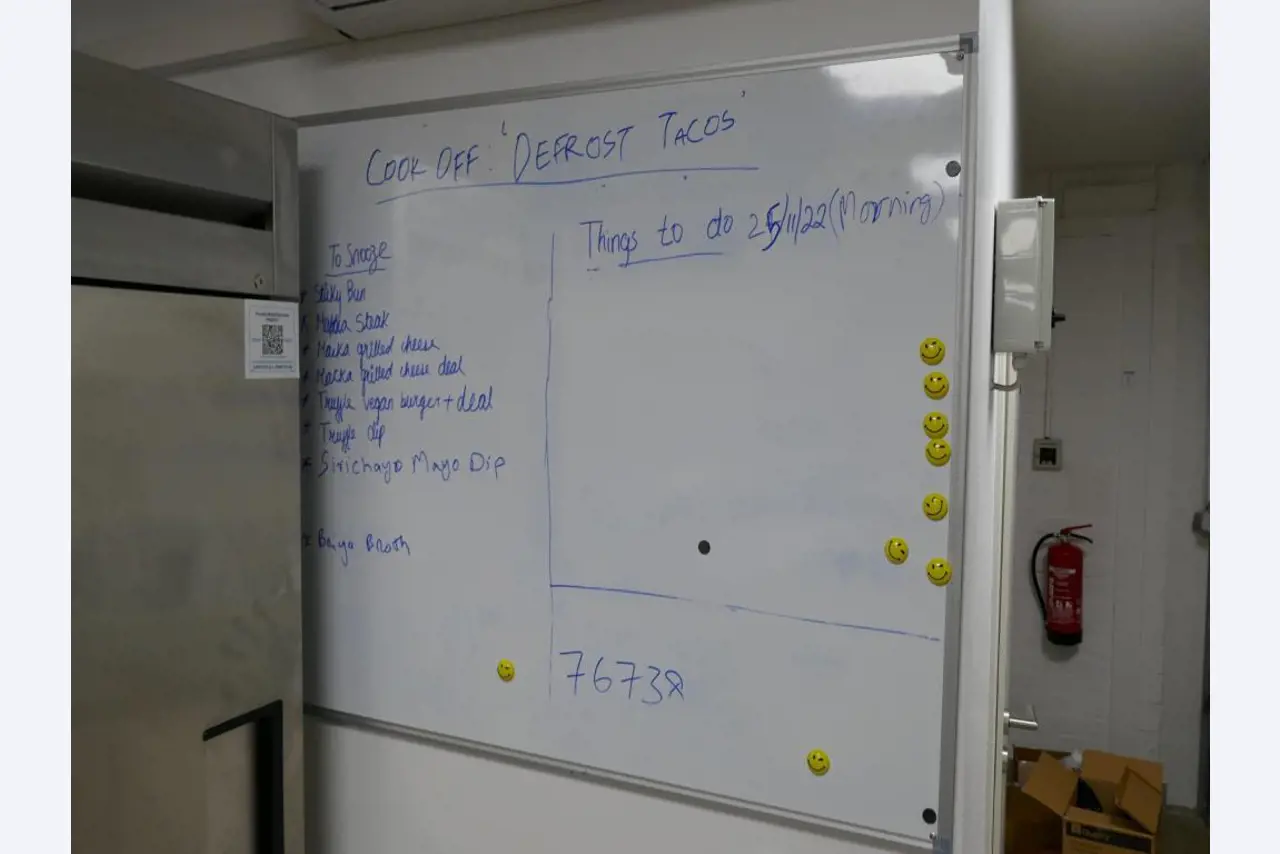 COOK OFF: 'DEFROST TACOS'
To Snooze
Sticky Bun
Steak
Macka grilled cheese
Macka grilled cheese deal
Truffle vegan burger + deal
Truffle dip
Sirichayo Mayo Dip
Broth
Things to do 25/11/22 (Morning)
76738